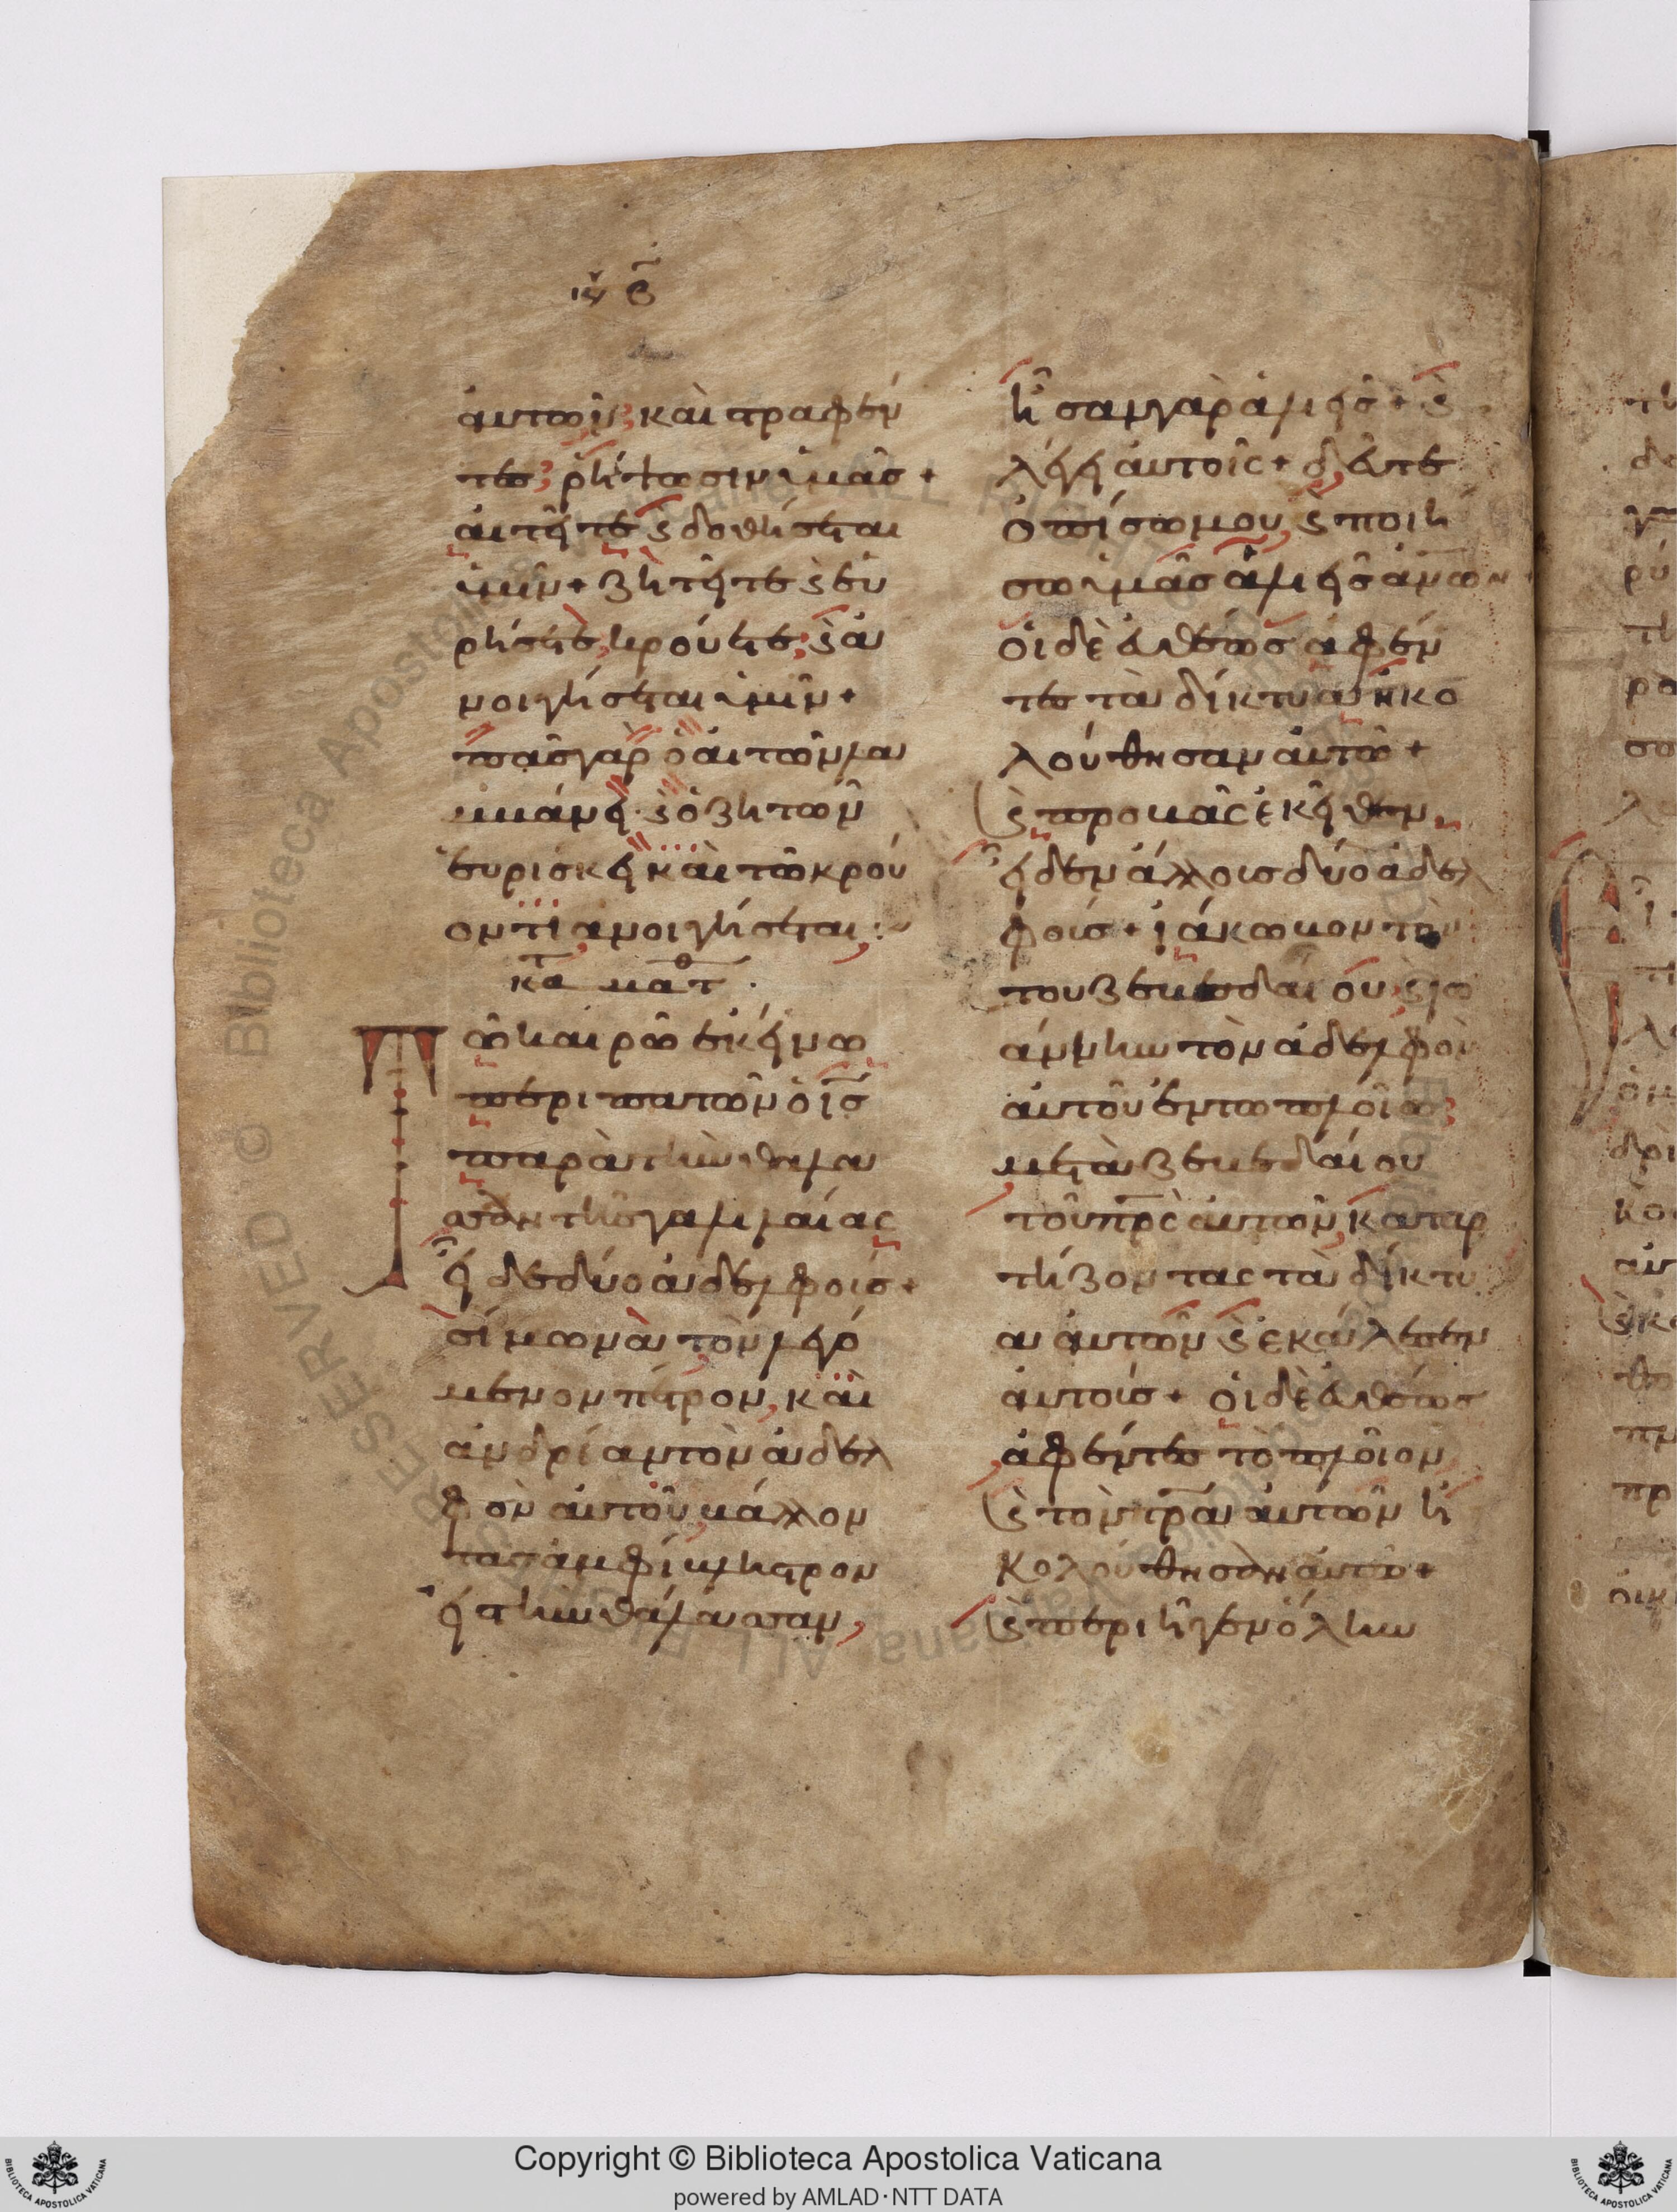 αὐτῶν καὶ στραφέν
τες ῥήξωσιν ὑμᾶς +
αἰτεῖτε ϗ δοθήσεται
ὑμῖν + ζητεῖτε ϗ εὑ
ρήσετε, κρούετε, ϗ ἀ
νοιγήσεται ὑμῖν +
πᾶς γὰρ ὁ αἰτῶν λα
μβάνει· ϗ ὁ ζητῶν
εὑρίσκει καὶ τῶ κρού
οντι ἀνοιγήσεται :
κα ματθ .
Τῶ καιρῶ ἐκείνω
περιπατῶν ὁ ις
παρὰ τὴν θάλασ
σαν τῆς γαλιλαίας
εἶδε δύο ἀδελφούς +
σίμωνα τὸν λεγό
μενον πέτρον, καὶ
ἀνδρέαν τὸν ἀδελ
φὸν αὐτοῦ βάλλον
τας ἀμφίβληστρον
εἰς τὴν θάλασσαν,
ἦσαν γὰρ ἁλιεῖς + ϗ
λέγει αὐτοῖς + δεῦτε
ὀπίσω μου, ϗ ποιή
σω ὑμᾶς ἁλιεῖς ανων
οἱ δὲ εὐθέως ἀφέν
τες τὰ δίκτυα ἠκο
λούθησαν αὐτῶ +
ϗ προβὰς ἐκεῖθεν,
εἶδεν ἄλλους δύο ἀδελ
φούς + ἰάκωβον τὸν
του ζεβεδαίου, ϗ ἰω
άννην τὸν ἀδελφὸν
αὐτοῦ ἐν τῶ πλοίω
μετὰ ζεβεδαίου
τοῦ πρς αὐτῶν, καταρ
τίζοντας τὰ δίκτυ
α αὐτῶν ϗ ἐκάλεσεν
αὐτούς + οἱ δὲ εὐθέως
ἀφέντες τὸ πλοῖον
ϗ τὸν πρα αὐτῶν ἠ
κολούθησαν αὐτῶ +
ϗ περιῆγεν ὅλην